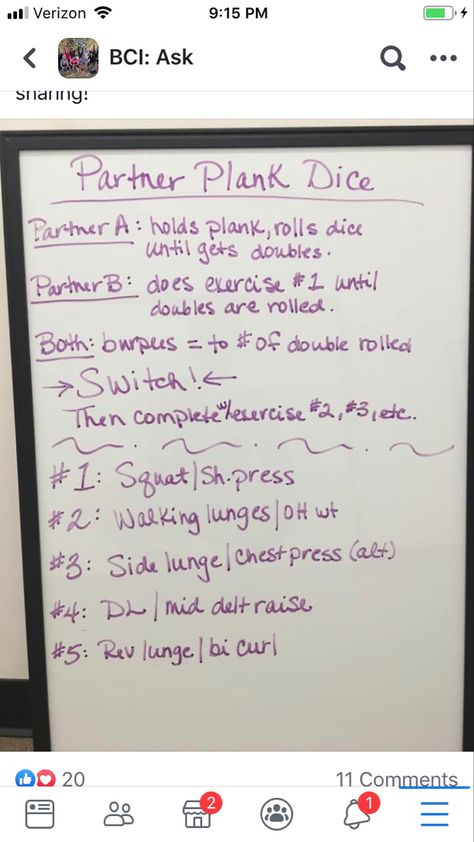 Verizon 9:15 PM
BCI: Ask
sharing!
Partner Plank Dice
Partner A: holds plank, rolls dice
until gets doubles.
Partner B: does exercise #1 until
doubles are rolled.
Both: burpees = to # of double rolled
→ Switch! ←
Then complete w/exercise #2, #3, etc.
#1: Squat/Sh. press
#2: Walking lunges/OH wt
#3: Side lunge/chest press (alt)
#4: DL/mid delt raise
#5: Rev lunge/bi curl
20 11 Comments
2 1